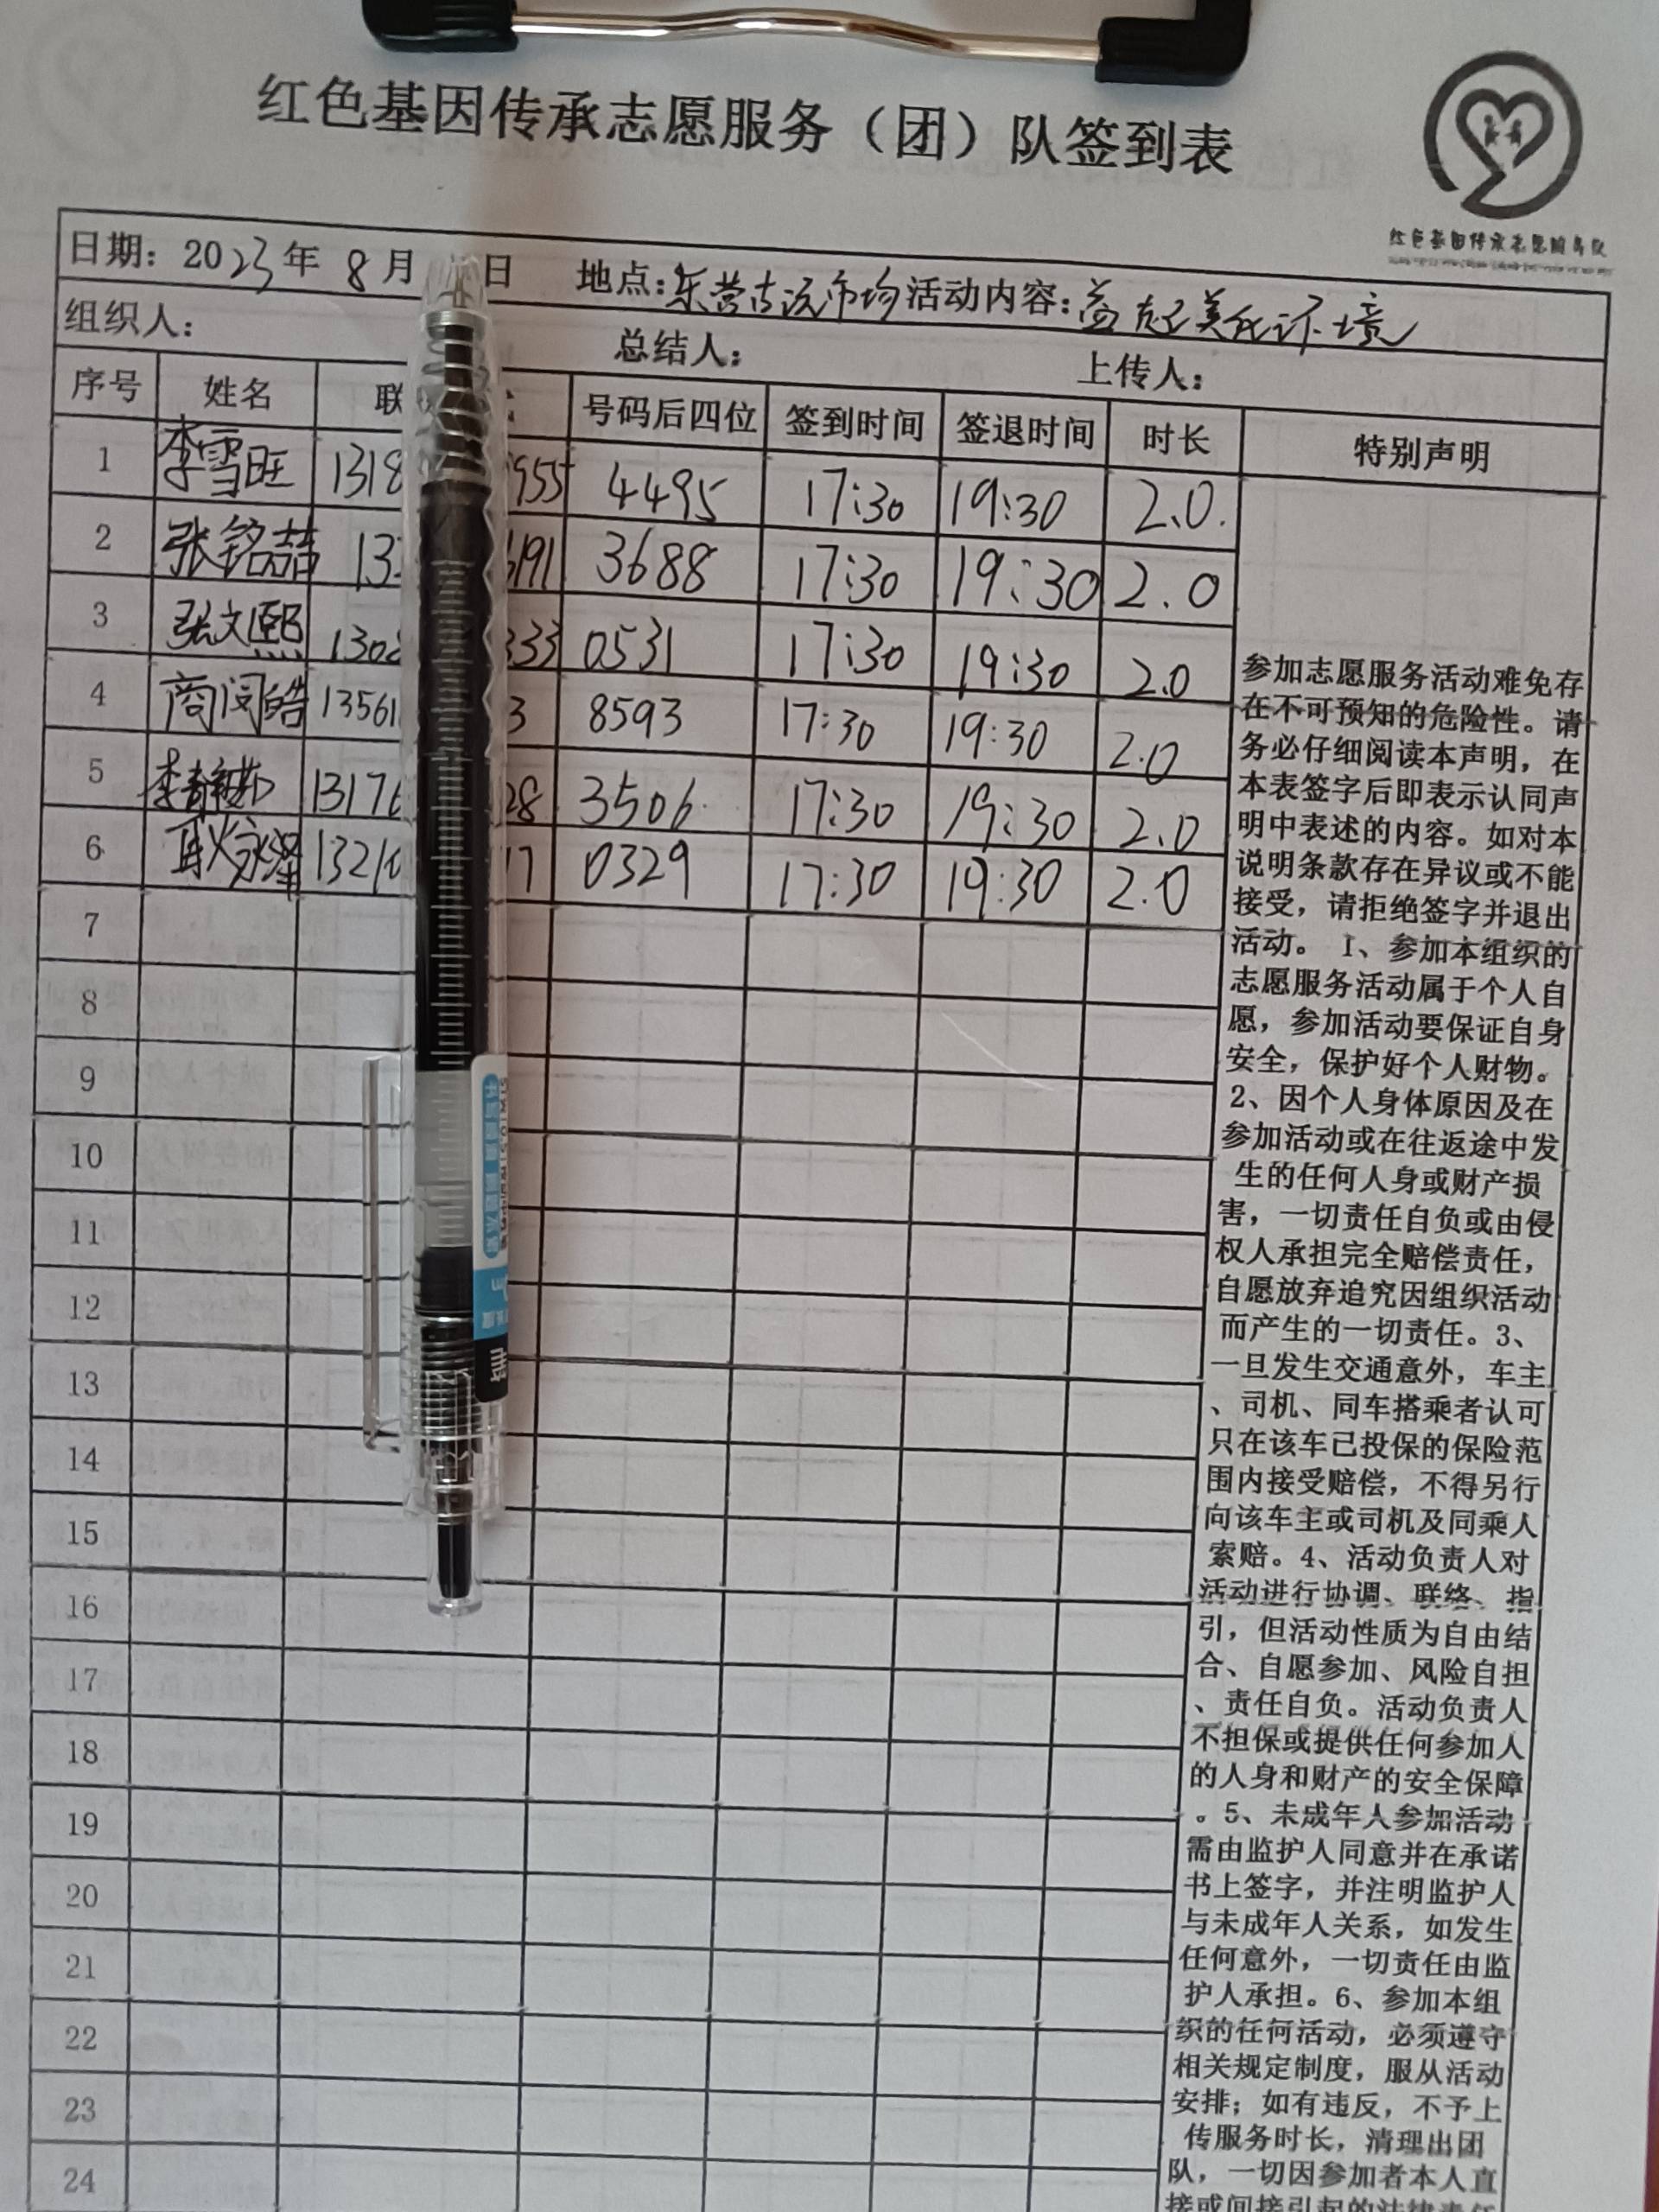 红色基因传承志愿服务（团）队签到表
红色基因传承志愿服务队
日期：2023年 8月 日 地点：东营古玩市场 活动内容：益起美化环境
组织人： 总结人： 上传人：
序号 姓名 联 号码后四位 签到时间 签退时间 时长 特别声明
1 李雪旺 1318 955 4495 17:30 19:30 2.0.
2 张铭喆 13 6191 3688 17:30 19:30 2.0
3 张文熙 1308 333 0531 17:30 19:30 2.0
4 商闰皓 13561 3 8593 17:30 19:30 2.0
5 李 13176 28 3506 17:30 19:30 2.0
6 耿 1321 17 0329 17:30 19:30 2.0
7
8
9
10
11
12
13
14
15
16
17
18
19
20
21
22
23
24
参加志愿服务活动难免存
在不可预知的危险性。请
务必仔细阅读本声明，在
本表签字后即表示认同声
明中表述的内容。如对本
说明条款存在异议或不能
接受，请拒绝签字并退出
活动。 1、参加本组织的
志愿服务活动属于个人自
愿，参加活动要保证自身
安全，保护好个人财物。
2、因个人身体原因及在
参加活动或在往返途中发
生的任何人身或财产损
害，一切责任自负或由侵
权人承担完全赔偿责任，
自愿放弃追究因组织活动
而产生的一切责任。3、
一旦发生交通意外，车主
、司机、同车搭乘者认可
只在该车已投保的保险范
围内接受赔偿，不得另行
向该车主或司机及同乘人
索赔。4、活动负责人对
活动进行协调、联络、指
引，但活动性质为自由结
合、自愿参加、风险自担
、责任自负。活动负责人
不担保或提供任何参加人
的人身和财产的安全保障
。5、未成年人参加活动
需由监护人同意并在承诺
书上签字，并注明监护人
与未成年人关系，如发生
任何意外，一切责任由监
护人承担。6、参加本组
织的任何活动，必须遵守
相关规定制度，服从活动
安排；如有违反，不予上
传服务时长，清理出团
队，一切因参加者本人直
接或间接引起的法律责任